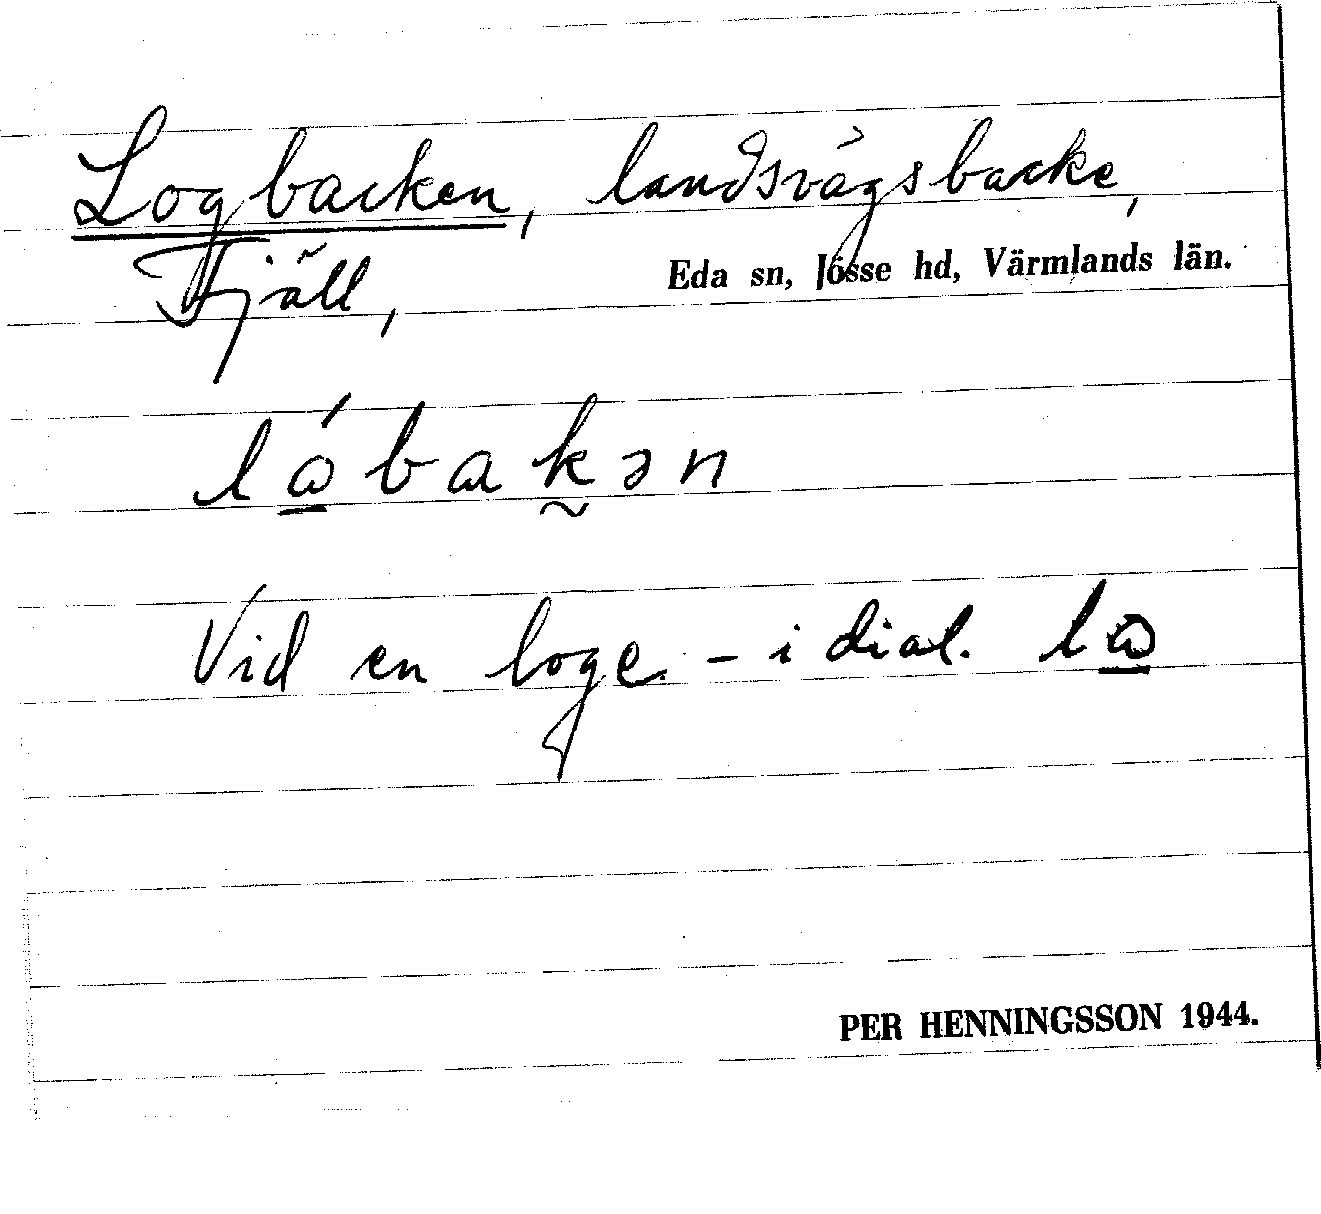 Logbacken, landsvägsbacke,
Fjäll, Eda sn, Jösse hd, Värmlands län.
lǫ́bak̰ən
Vid en loge. – i dial. lω̱
PER HENNINGSSON 1944.